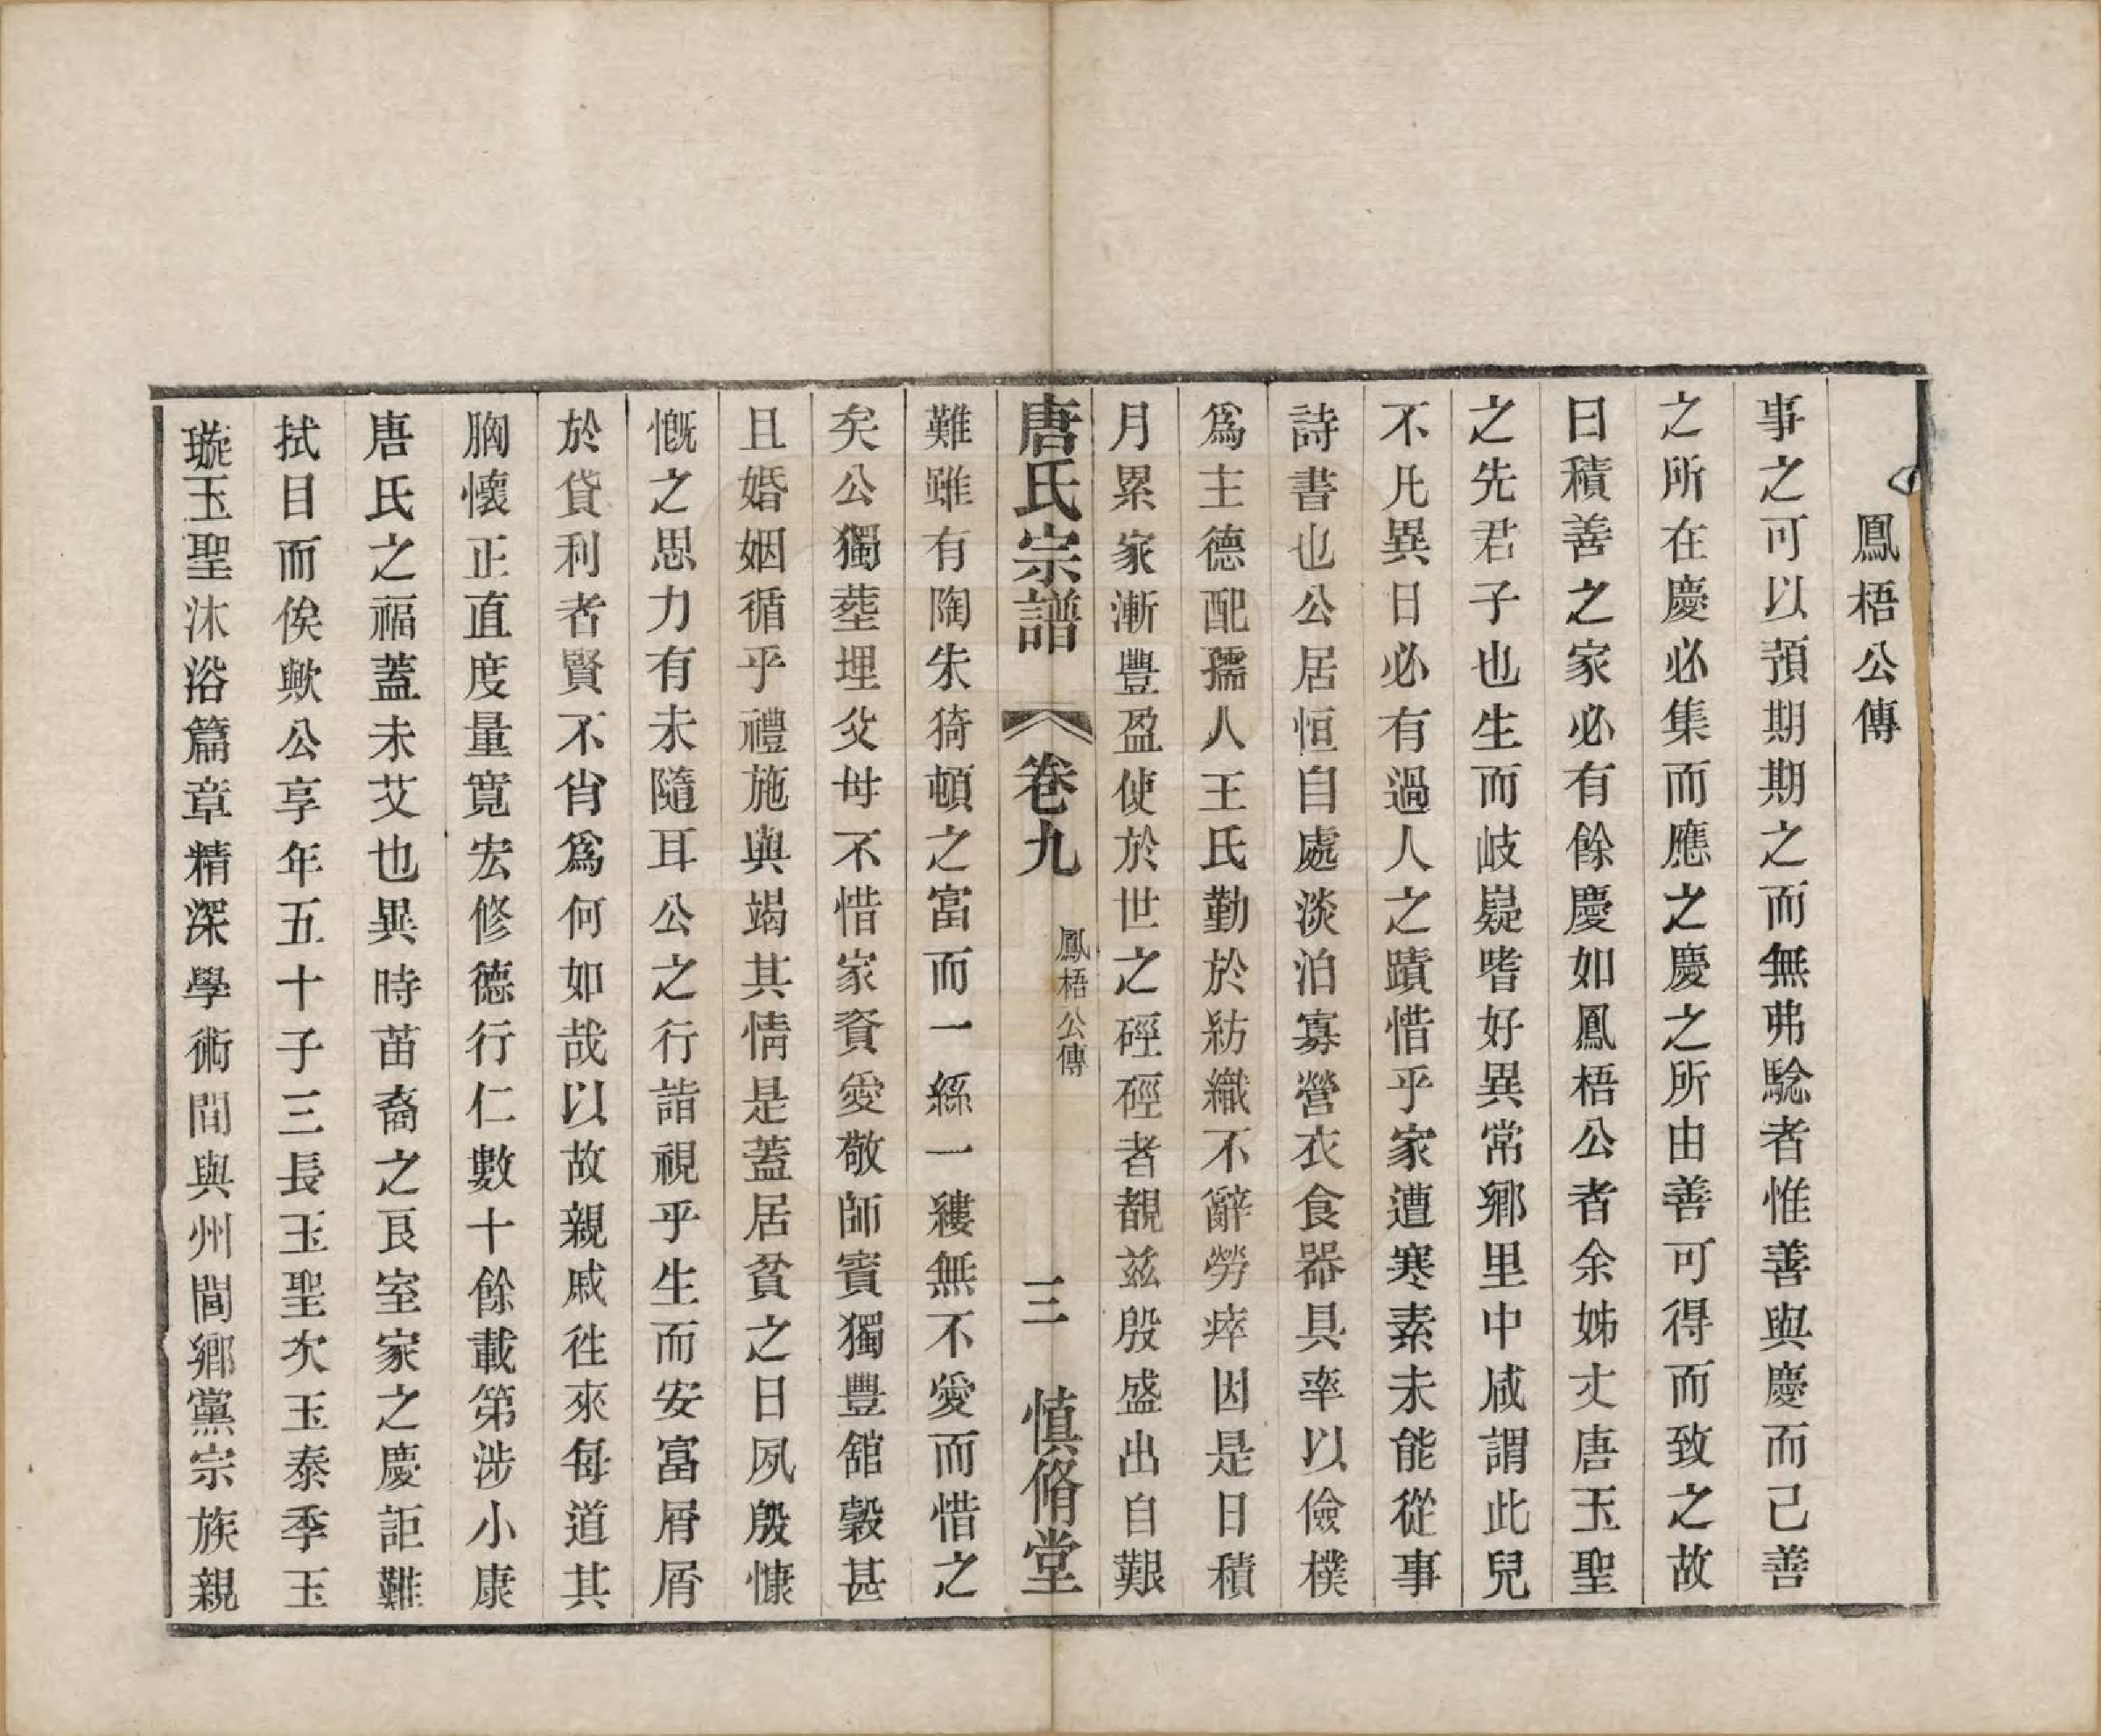 鳳梧公傳
事之可以預期期之而無弗騐者惟善與慶而己善
之所在慶必集而應之慶之所由善可得而致之故
曰積善之家必有餘慶如鳳梧公者余姊丈唐玉聖
之先君子也生而岐嶷嗜好異常鄉里中咸謂此兒
不凡異日必有過人之蹟惜乎家遭寒素未能從事
詩書也公居恒自處淡泊寡營衣食器具率以儉樸
爲主德配孺人王氏勤於紡織不辭勞瘁因是日積
月累家漸豐盈使於世之硜硜者覩兹殷盛出自艱
唐氏宗譜 卷九 鳳梧公傳 三 慎脩堂
難雖有陶朱猗頓之富而一絲一縷無不愛而惜之
矣公獨塟埋父母不惜家資愛敬師賓獨豐舘穀甚
且婚姻循乎禮施與竭其情是蓋居貧之日夙殷慷
慨之思力有未隨耳公之行詣視乎生而安富屑屑
於貸利者賢不肖爲何如哉以故親戚徃來每道其
胸懷正直度量寬宏修德行仁數十餘載第涉小康
唐氏之福蓋未艾也異時苗裔之良室家之慶詎難
拭目而俟歟公享年五十子三長玉聖次玉泰季玉
璇玉聖沐浴篇章精深學術間與州閭鄉黨宗族親